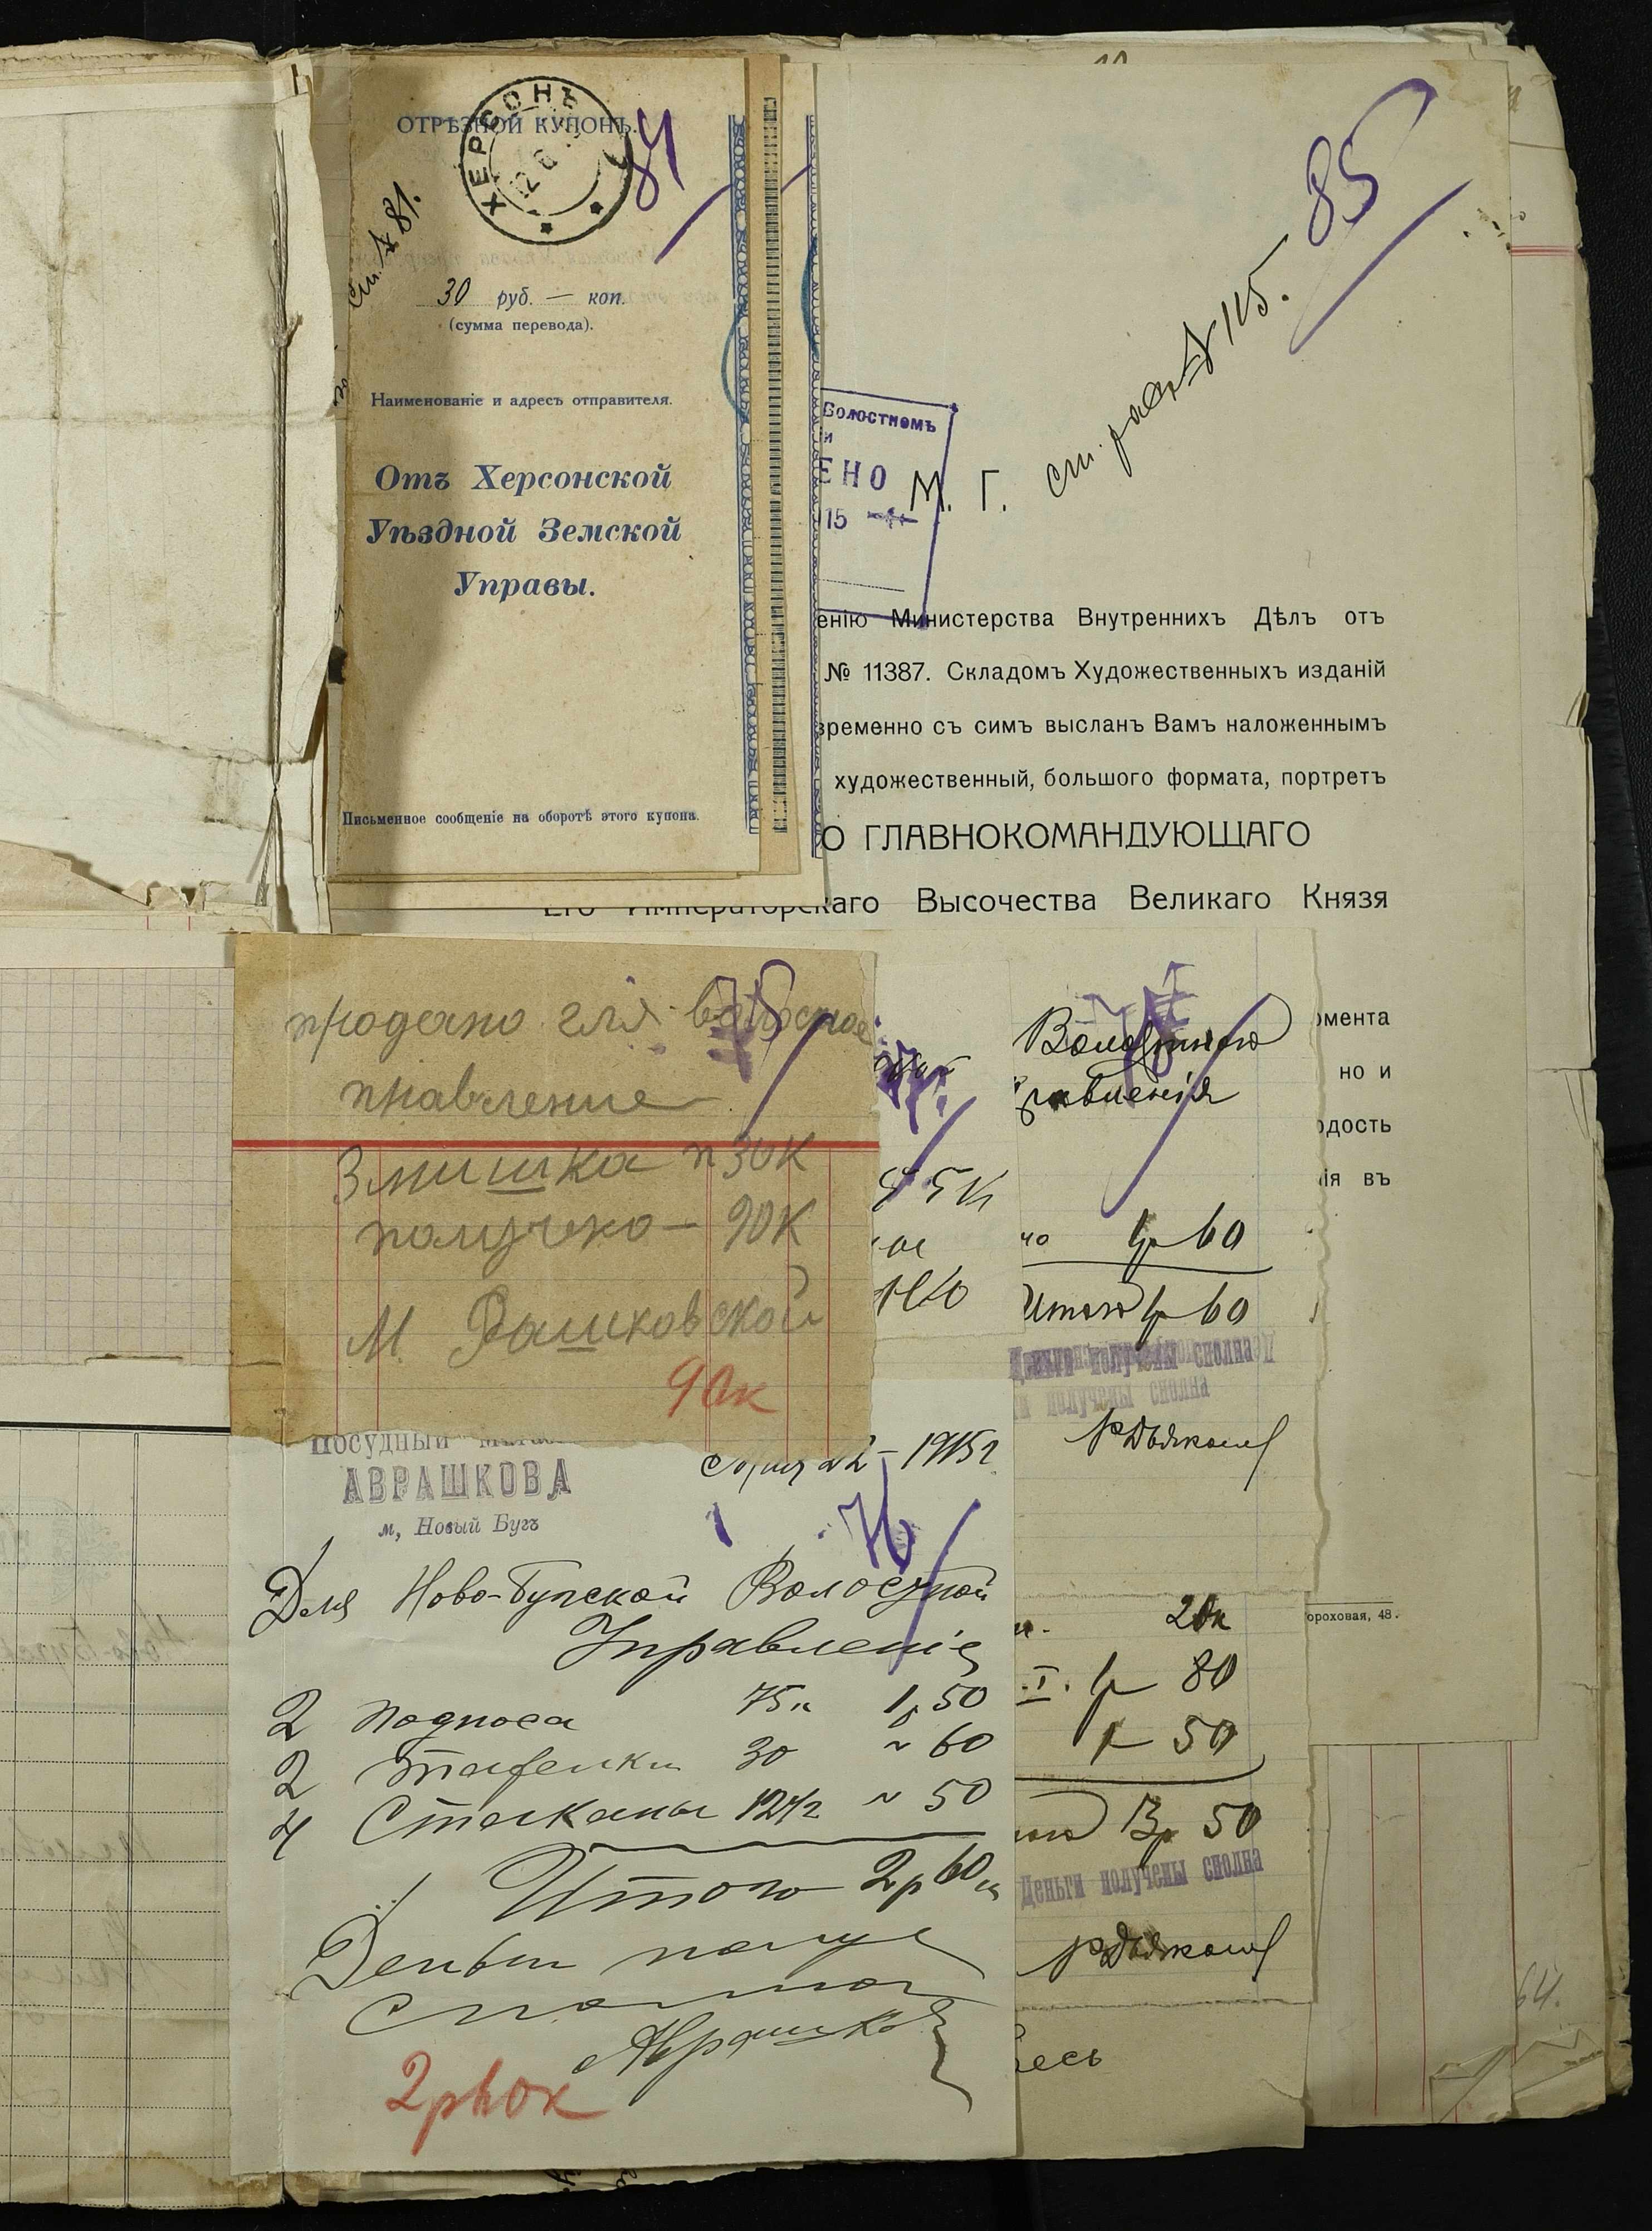 ОТРѢЗНОЙ КУПОНЪ.
ХЕРСОНЪ
84
ст. № 81.
30 руб. — коп.
(сумма перевода).
Наименованіе и адресъ отправителя.
Отъ Херсонской
Уѣздной Земской
Управы.
Письменное сообщеніе на оборотѣ этого купона.
85
№ 115.
Волостномъ
и
ЕНО
15
М. Г.
енію Министерства Внутреннихъ Дѣлъ отъ
№ 11387. Складомъ Художественныхъ изданій
временно съ симъ высланъ Вамъ наложеннымъ
художественный, большого формата, портретъ
О ГЛАВНОКОМАНДУЮЩАГО
Его Императорскаго Высочества Великаго Князя
омента
но и
рдость
ія въ
ороховая, 48.
продано для волосное
правление
3 мишка п 30К
получено — 90К
М. Рашковской
90к
Волостного
Правленія
1р 60
Итого 1р 60
Деньги получены сполна
получены сполна
РДьяконов
45К
20к
I. 1р 80
1 50
3р 50
Деньги получены сполна
РДьяконов
Посудный
АВРАШКОВА
м, Новый Бугъ
22 – 1915г
76
Для Ново-Бугской Волостной
Управленія
2 Подноса 75к 1р 50
2 тарелки 30 " 60
4 Стаканы 12½ " 50
Итого 2р 60к
Деньги получ
сполна
Аврашков
2р60к
есь
64.